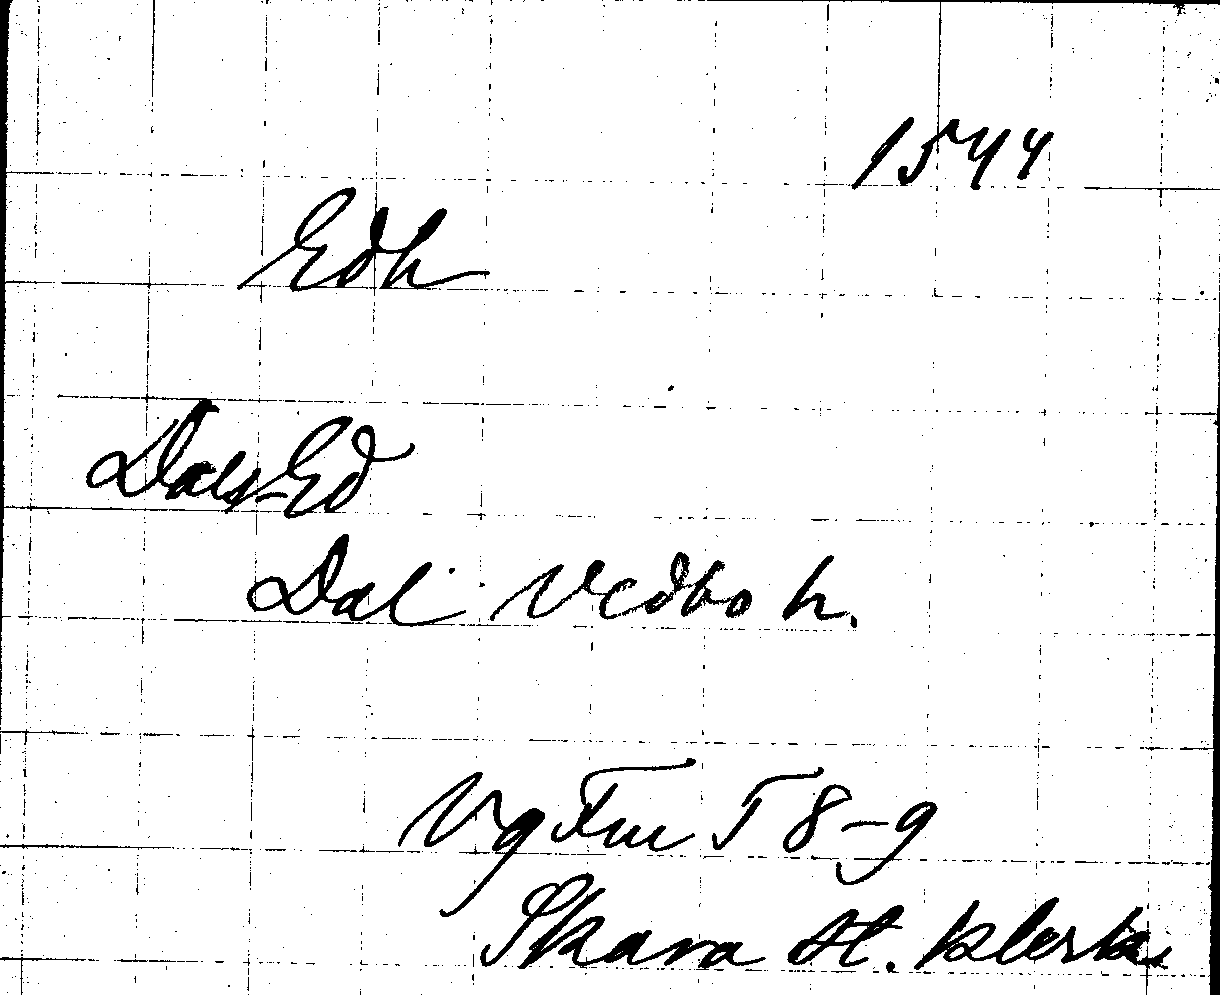 1544
Edh
Dals-Ed
Dal Vedbo h.
Vg Fm I 8-9
Skara st. klerk.